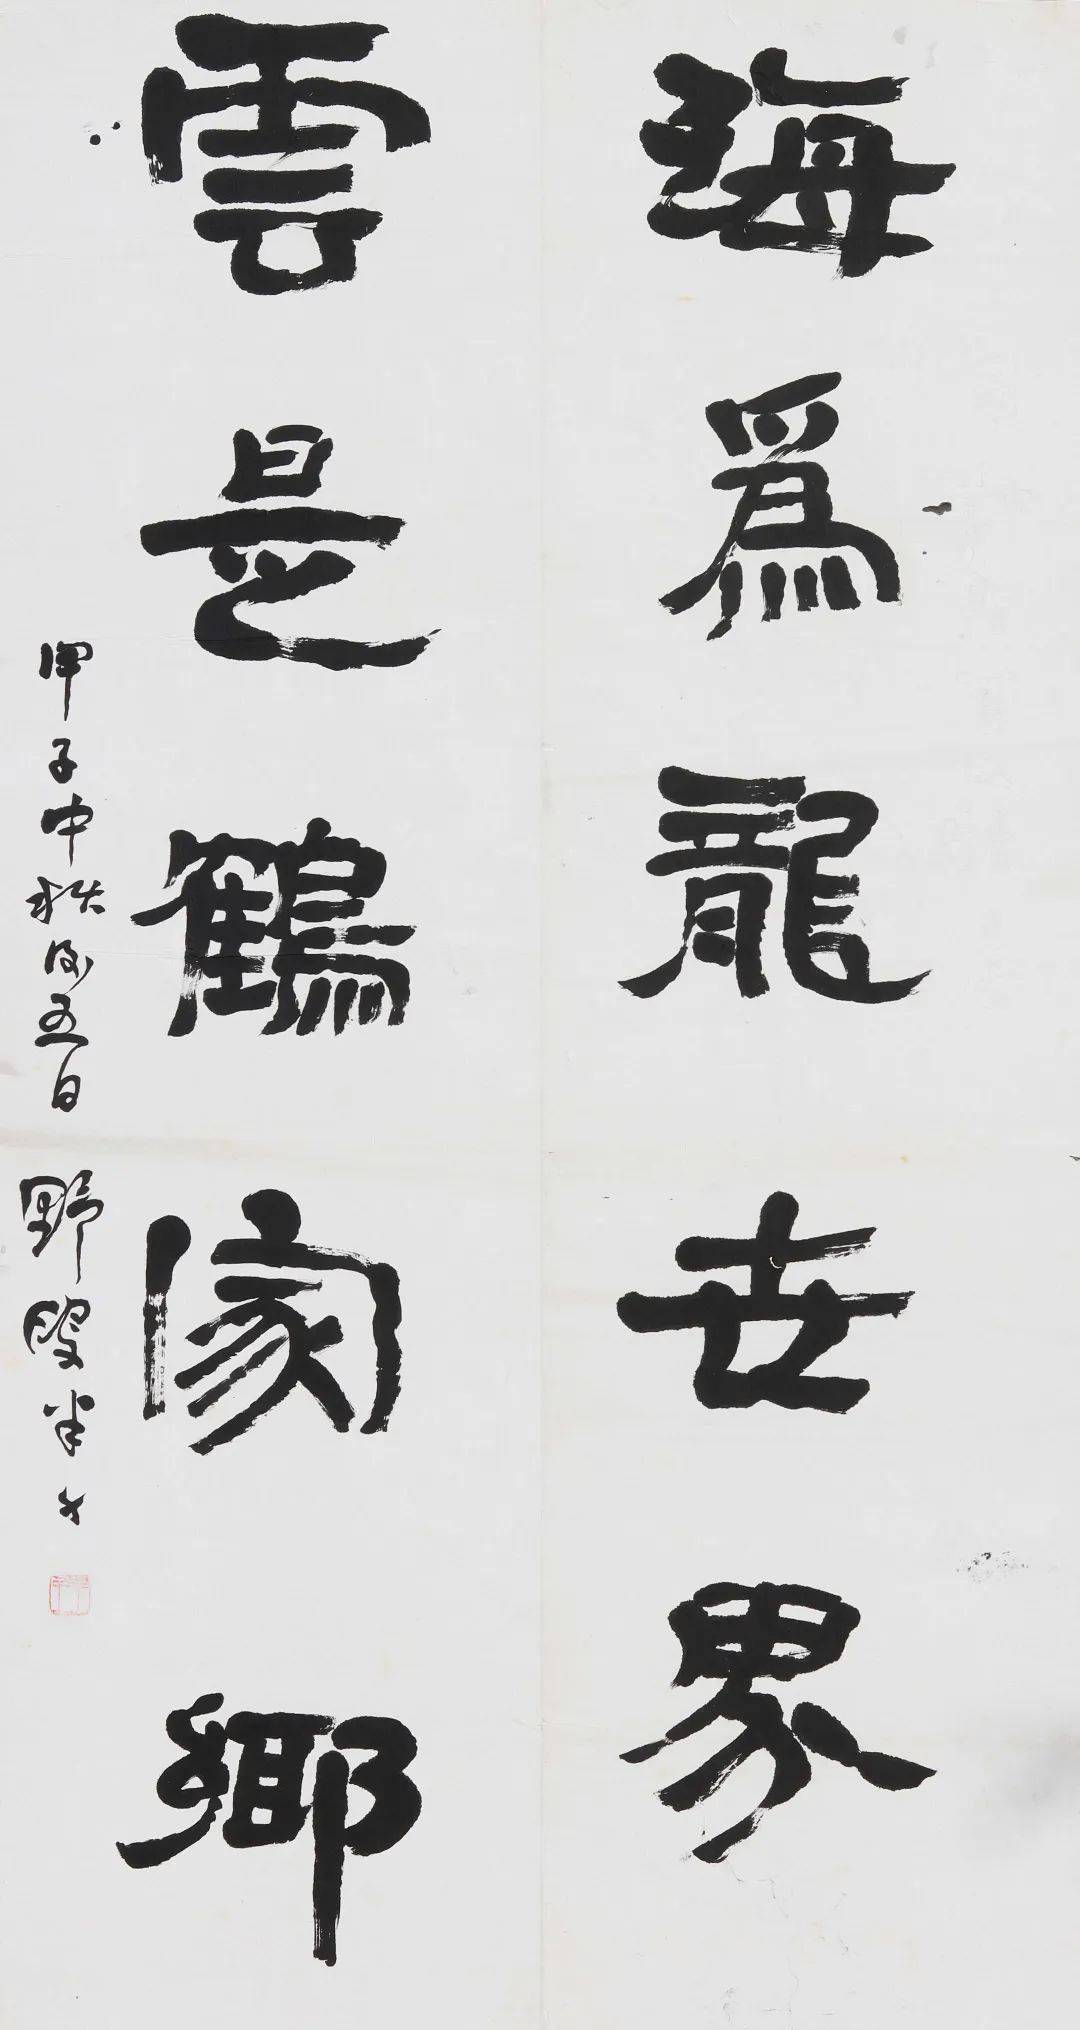 海爲龍世界
雲是鶴家鄉
甲子中秋後五日
野叟半丁